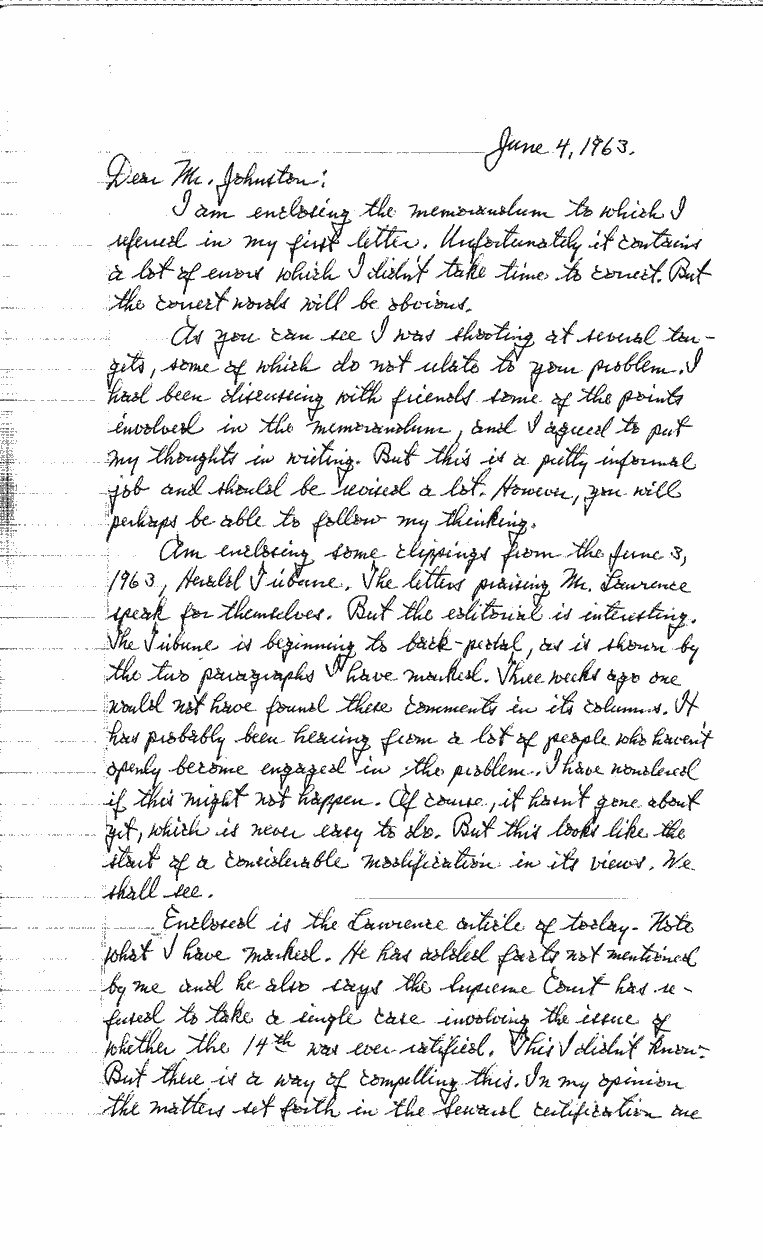 June 4, 1963.
Dear Mr. Johnston:
I am enclosing the memorandum to which I
referred in my first letter. Unfortunately it contains
a lot of errors which I didn't take time to correct. But
the correct words will be obvious.
As you can see I was shooting at several tar-
gets, some of which do not relate to your problem. I
had been discussing with friends some of the points
involved in the memorandum, and I agreed to put
my thoughts in writing. But this is a pretty informal
job and should be revised a lot. However, you will
perhaps be able to follow my thinking.
Am enclosing some clippings from the June 3,
1963, Herald Tribune. The letters praising Mr. Lawrence
speak for themselves. But the editorial is interesting.
The Tribune is beginning to back-pedal, as is shown by
the two paragraphs I have marked. Three weeks ago one
would not have found these comments in its columns. It
has probably been hearing from a lot of people who haven't
openly become engaged in the problem. I have wondered
if this might not happen. Of course, it hasn't gone about
yet, which is never easy to do. But this looks like the
start of a considerable modification in its views. We
shall see.
Enclosed is the Lawrence article of today. Note
what I have marked. He has added facts not mentioned
by me and he also says the Supreme Court has re-
fused to take a single case involving the issue of
whether the 14th was ever ratified. This I didn't know.
But there is a way of compelling this. In my opinion
the matters set forth in the Seward certification are